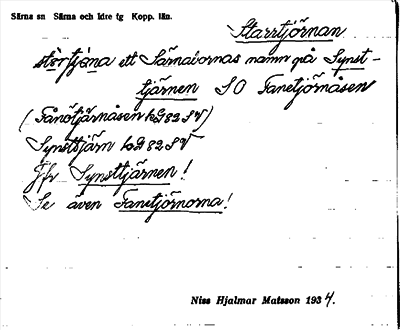 Särna sn Särna och Idre tg Kopp. län.
Starrtjörnan
störtjöna ett Särnabornas namn på Synst-
tjärnen SO Fanetjörnåsen
(Fånötjärnåsen bG82SV)
Synsttjärn bG82SV
Jfr Synsttjärnen!
Se även Fanetjörnorna!
Niss Hjalmar Matsson 1934.